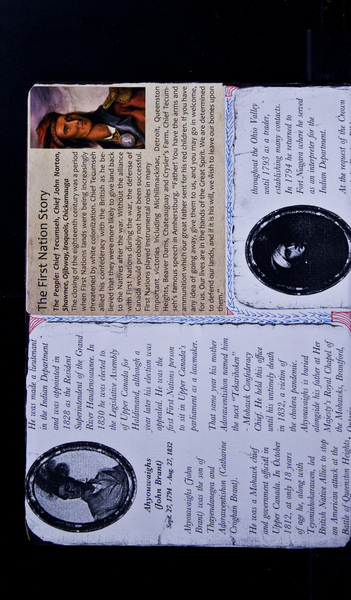 Ahyouwaighs
(John Brant)
Sept. 27, 1794 - Aug. 27, 1832
Ahyouwaighs (John
Brant) was the son of
Thayendanegea and
Adonwentishon (Catharine
Croghan Brant).
He was a Mohawk chief
and government official in
Upper Canada. In October
1812, at only 18 years
of age he, along with
Teyoninhokarawen, led
British Native Allies to stop
an American attack at the
Battle of Queenston Heights.
He was made a lieutenant
in the Indian Department
and was appointed in
1828 as the Resident
Superintendent of the Grand
River Haudenosaunee. In
1830 he was elected to
the Legislative Assembly
of Upper Canada for
Haldimand, although a
year later his election was
appealed. He was the
first First Nations person
to sit in Upper Canada's
parliament as a lawmaker.
That same year his mother
Adonwentishon named him
the next "Tekarihoken"
- Mohawk Confederacy
Chief. He held this office
until his untimely death
in 1832, a victim of
the cholera pandemic.
Ahyouwaighs is buried
alongside his father at Her
Majesty's Royal Chapel of
the Mohawks, Brantford,
The First Nation Story
The People: Chief Tecumseh, Chief John Norton,
Shawnee, Ojibway, Iroquois, Chickamauga
The closing of the eighteenth century was a period
when First Nations lands were being increasingly
threatened by white colonization. Chief Tecumseh
allied his warriors with the British, as he be-
lieved that they were more likely to give land back
to the Natives after the war. Without the alliance
with First Nations during the war, the defense of
Canada would probably not have been successful.
First Nations played instrumental roles in many
important victories including Michilimackinac, Detroit, Queenston
Heights, Beaver Dams, Chateauguay and Crysler's Farm. Chief Tecum-
seh's famous speech in Amherstburg, "Father! You have the arms and
ammunition which our great father sent for his red children. If you have
any idea of going away, give them to us, and you may go in welcome,
for us. Our lives are in the hands of the Great Spirit. We are determined
to defend our lands, and if it is his will, we wish to leave our bones upon
them."
throughout the Ohio Valley
until 1793 as a trader,
establishing many contacts.
In 1794 he returned to
Fort Niagara where he served
as an interpreter for the
Indian Department.
At the request of the Crown